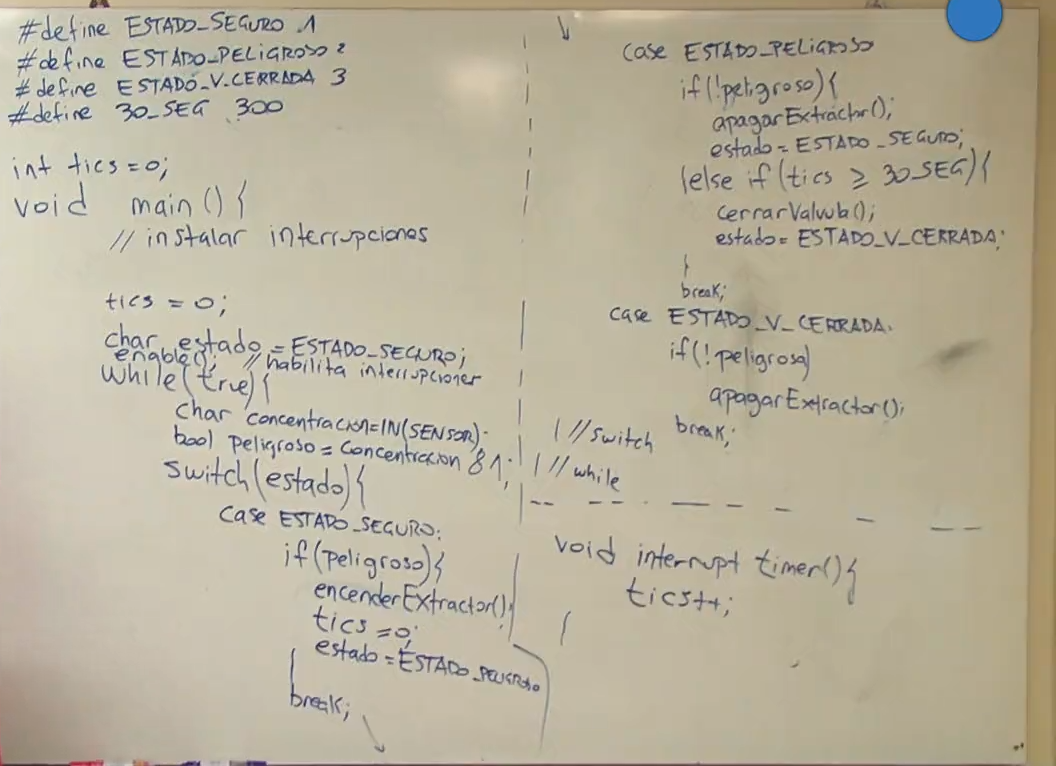 #define ESTADO_SEGURO 1
#define ESTADO_PELIGROSO 2
#define ESTADO_V_CERRADA 3
#define 30_SEG 300
int tics = 0;
void main () {
// instalar interrupciones
tics = 0;
char estado = ESTADO_SEGURO;
enable(); // habilita interrupciones
while(true){
char concentracion=IN(SENSOR);
bool peligroso = Concentracion & 1;
switch(estado){
case ESTADO_SEGURO:
if(peligroso){
encenderExtractor();
tics = 0;
estado = ESTADO_PELIGROSO
}
break;
case ESTADO_PELIGROSO
if(!peligroso){
apagarExtractor();
estado = ESTADO_SEGURO;
}else if(tics ≥ 30_SEG){
cerrarValvula();
estado = ESTADO_V_CERRADA;
}
break;
case ESTADO_V_CERRADA:
if(!peligroso)
apagarExtractor();
break;
} //switch
} // while
void interrupt timer(){
tics++;
}